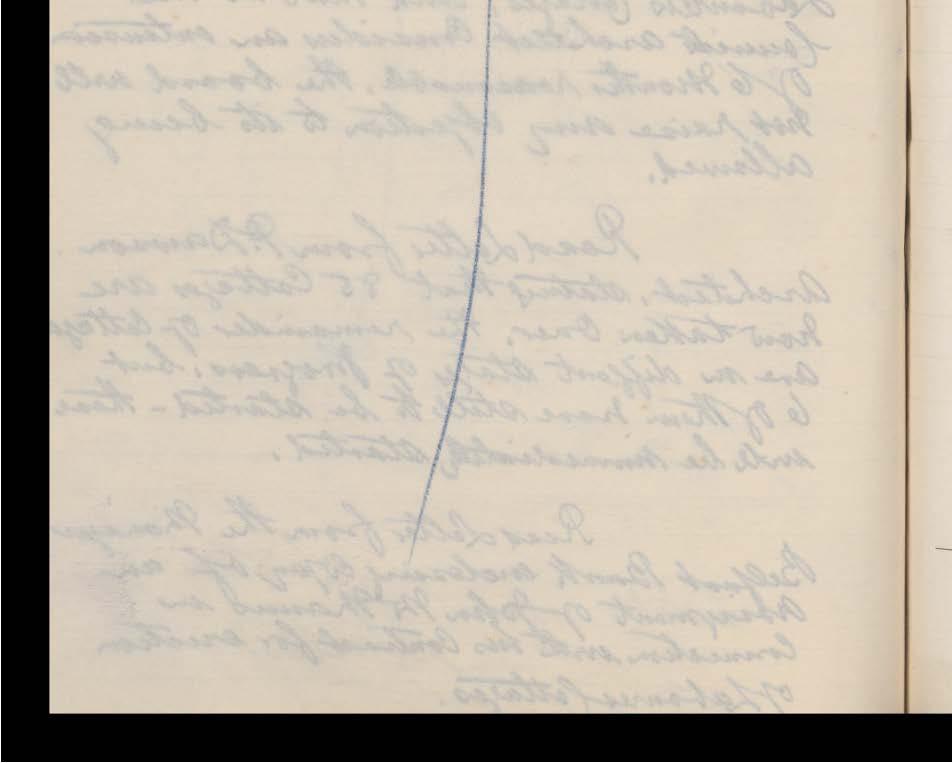 Labourers Cottages
Council's architect considers an extension
of 6 months reasonable, the board will
not raise any objection to its being
allowed.
Read letter from P. Dawson
Architect, stating that 35 Cottages are
now taken over, the remainder of Cottages
are in diffent stages of progress, but
6 of them have still to be started - these
will be immediately started.
Read letter from the Manager
Belfast Bank enclosing copy of an
assignment of John Mc Manus in
connection with his contract for erection
of Labourers Cottages.